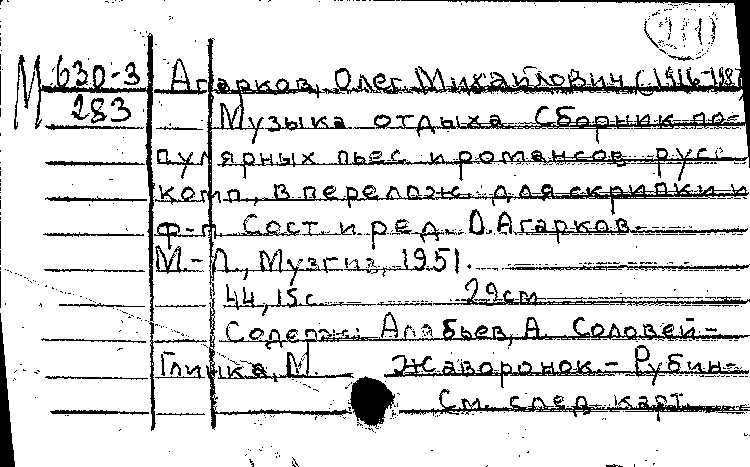 М 630-3 Агарков, Олег Михайлович (1916-198
283 Музыка отдыха Сборник по-
пулярных пьес и романсов русс
комп., в перелож. для скрипки и
ф-п. Сост и ред. О. Агарков.
М.-Л., Музгиз, 1951.
44, 15 с 29 см
Содерж: Алябьев, А. Соловей -
Глинка, М. Жаворонок. - Рубин-
См. след карт.